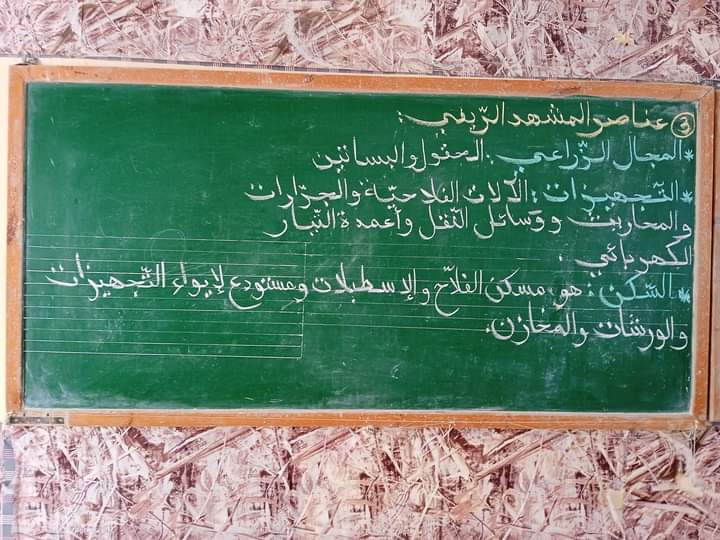 ③ عناصر المشهد الرّيفي:
* المجال الزّراعي: الحقول والبساتين
* التّجهيزات: الآلات الفلاحيّة والجرّارات
والمحاريث ووسائل النّقل وأعمدة التّيار
الكهربائي.
* السّكن: هو مسكن الفلاّح والإسطبلات ومستودع لإيواء التّجهيزات
والورشات والمخازن.